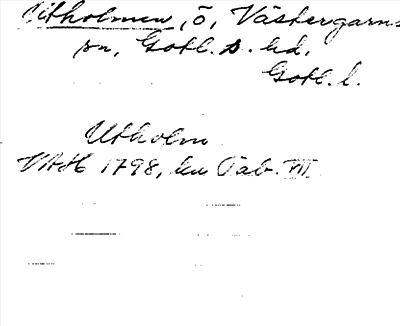 Utholmen, ö, Västergarns
sn, Gotl. s. hd,
Gotl. l.
Utholm
VAH 1798, Tab. VII